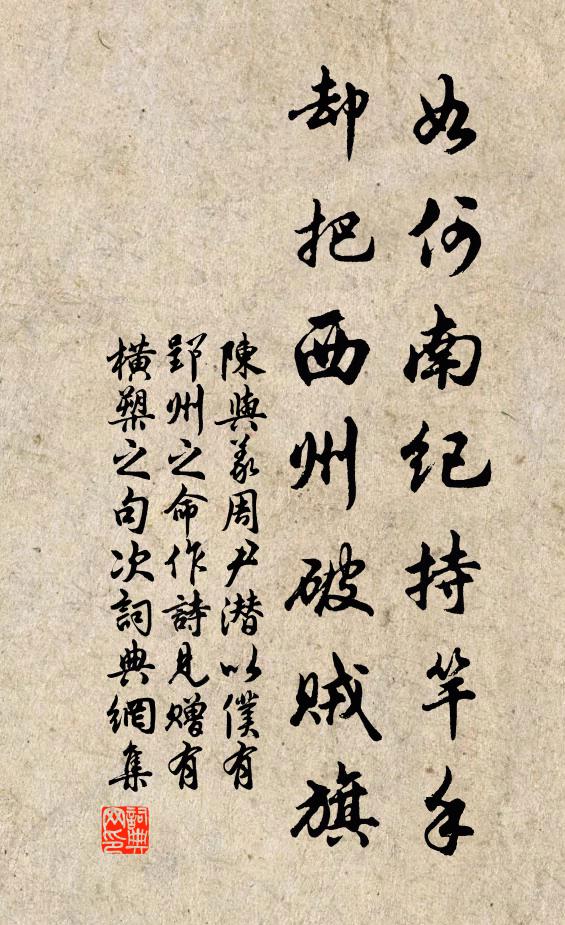 如何南紀持竿手
却把西州破賊旗
陳與義周尹潛以僕有
郢州之命作詩見贈有
橫槊之句次詞典網集
詞典網印